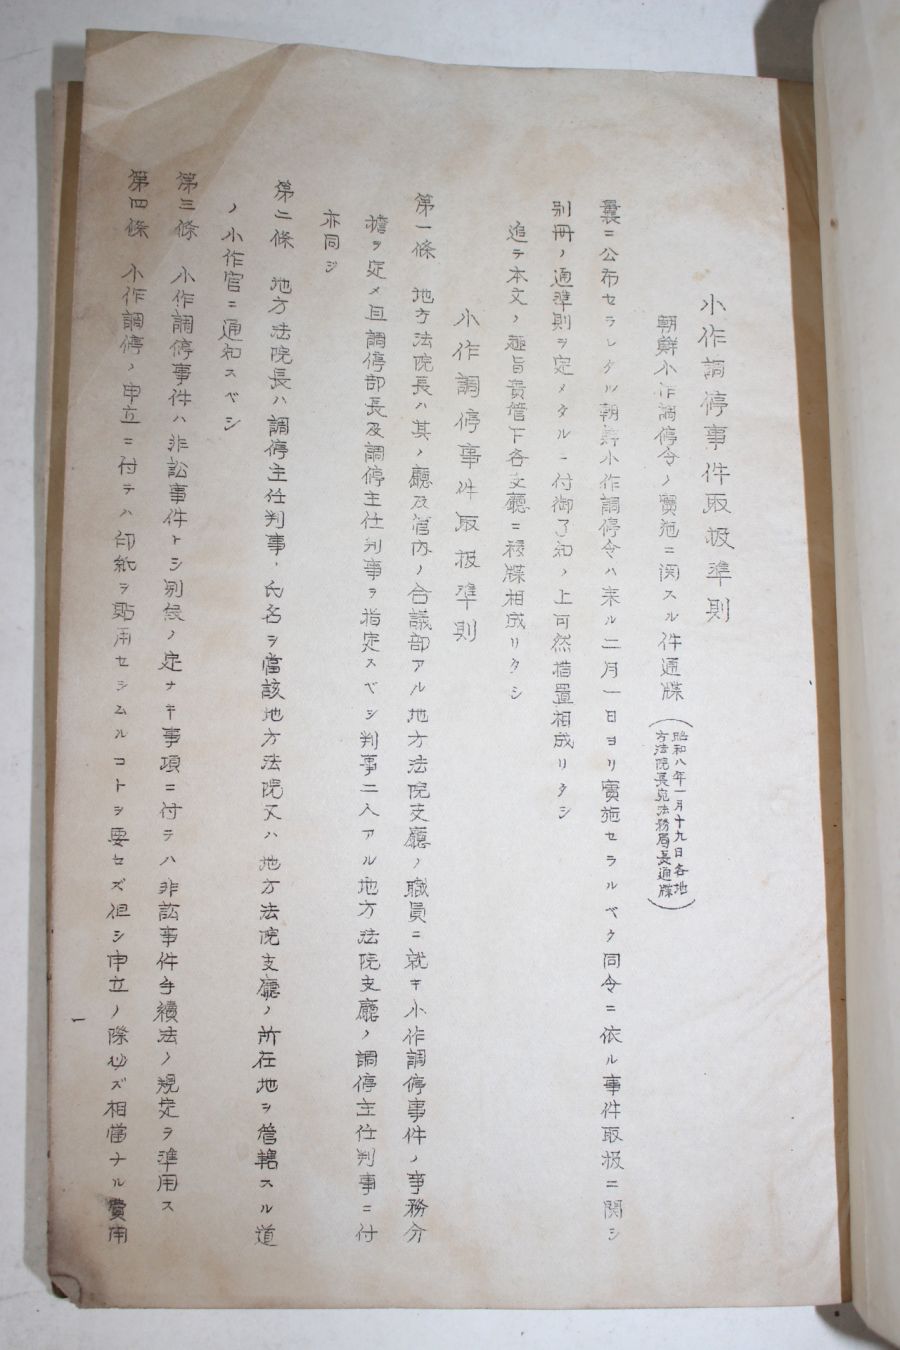 小作調停事件取扱準則
朝鮮小作調停令ノ實施ニ関スル件通牒
(昭和八年一月十九日各地
方法院長宛法務局長通牒)
曩ニ公布セラレタル朝鮮小作調停令ハ来ル二月一日ヨリ實施セラルベク同令ニ依ル事件取扱ニ関シ
別冊ノ通準則ヲ定メタルニ付御了知ノ上可然措置相成リタシ
追テ本文ノ趣旨貴管下各支廳ニ移牒相成リタシ
小作調停事件取扱準則
第一條 地方法院長ハ其ノ廳及管内ノ合議部アル地方法院支廳ノ職員ニ就キ小作調停事件ノ事務分
擔ヲ定メ且調停部長及調停主任判事ヲ指定スベシ判事二人アル地方法院支廳ノ調停主任判事ニ付
亦同ジ
第二條 地方法院長ハ調停主任判事ノ氏名ヲ當該地方法院又ハ地方法院支廳ノ所在地ヲ管轄スル道
ノ小作官ニ通知スベシ
第三條 小作調停事件ハ非訟事件トシ別段ノ定ナキ事項ニ付テハ非訟事件手續法ノ規定ヲ準用ス
第四條 小作調停ノ申立ニ付テハ印紙ヲ貼用セシムルコトヲ要セズ但シ申立ノ際必ズ相當ナル費用
一